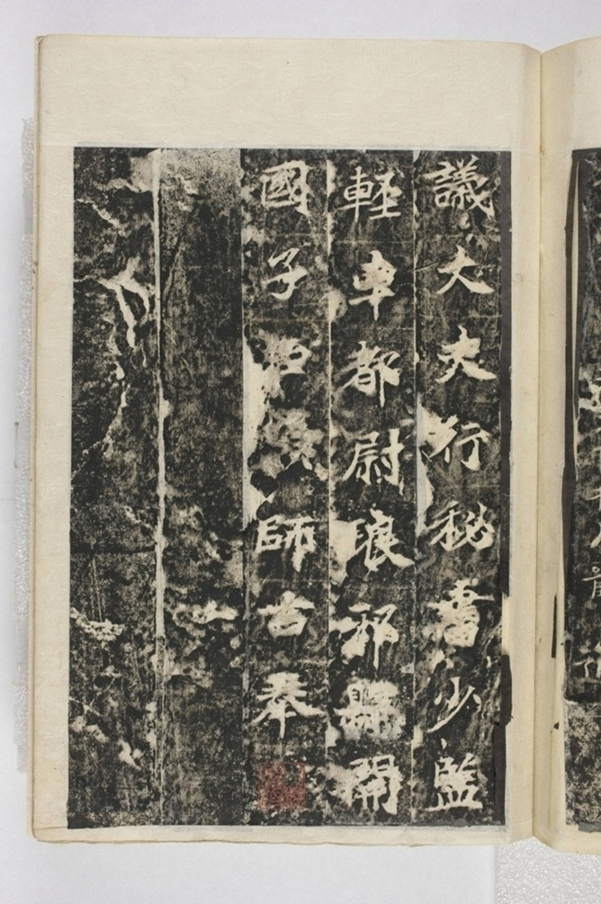 議大夫行秘書少監
軽車都尉琅邪縣開
國子臣顏師古奉